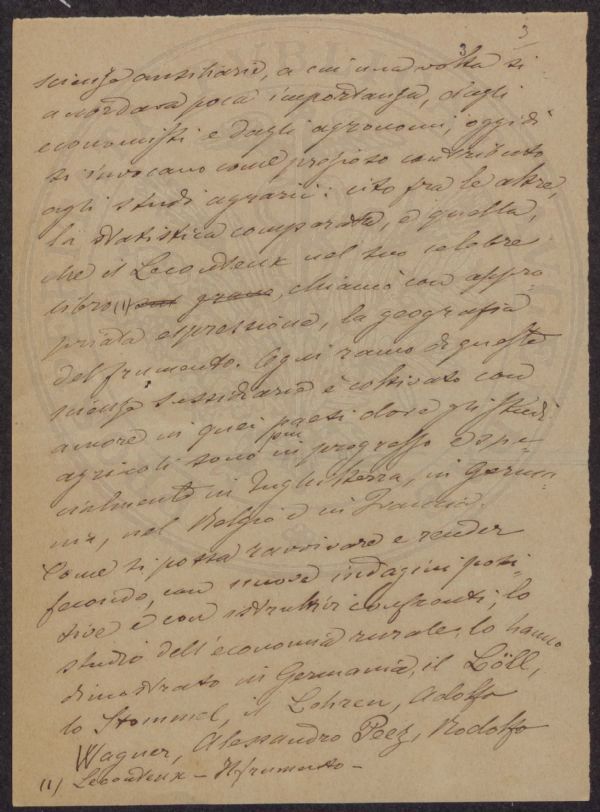 3
3
scienze ausiliarie, a cui una volta si
accordava poca importanza, dagli
economisti e dagli agronomi, oggidì
si invocano come prezioso contributo
agli studi agrarii: cito fra le altre,
la statistica comparata, e quella,
che il Lecouteux nel suo celebre
libro (1) , chiamò con appro
priata espressione, la geografia
del frumento. Ogni ramo di queste
scienze sussidiarie è coltivato con
amore in quei paesi dove gli studi
agricoli sono più in progresso e spe-
cialmente in Inghilterra, in Germa-
nia, nel Belgio e in Francia.
Come si possa ravvivare e render
fecondo, con nuove indagini posi-
tive e con istruttivi confronti, lo
studio dell'economia rurale, lo hanno
dimostrato in Germania, il Löll,
lo Stommel, il Lohren, Adolfo
Wagner, Alessandro Peez, Rodolfo
(1) Lecouteux - Il frumento -